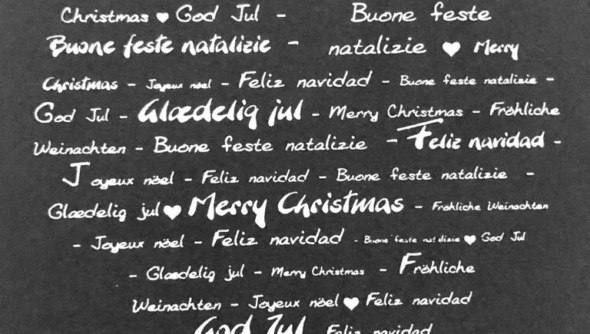 Christmas ♥ God Jul - Buone feste
Buone feste natalizie - natalizie ♥ Merry
Christmas - Joyeux nöel - Feliz navidad - Buone feste natalizie -
God Jul - Glædelig jul - Merry Christmas - Fröhliche
Weinachten - Buone feste natalizie - Feliz navidad -
Joyeux nöel - Feliz navidad - Buone feste natalizie -
Glædelig jul ♥ Merry Christmas - Fröhliche Weinachten
- Joyeux nöel - Feliz navidad - Buone feste natalizie ♥ God Jul
- Glædelig jul - Merry Christmas - Fröhliche
Weinachten - Joyeux nöel ♥ Feliz navidad
God Jul Feliz navidad